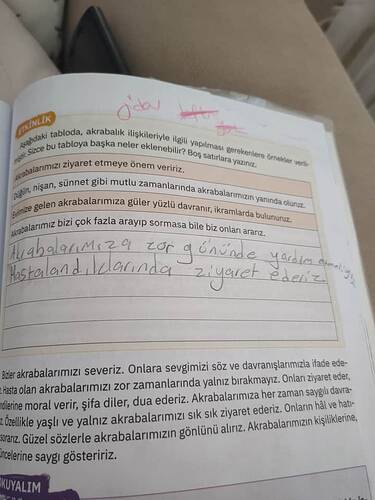 gidar
ETKİNLİK
Aşağıdaki tabloda, akrabalık ilişkileriyle ilgili yapılması gerekenlere örnekler veril-
miştir. Sizce bu tabloya başka neler eklenebilir? Boş satırlara yazınız.
Akrabalarımızı ziyaret etmeye önem veririz.
Düğün, nişan, sünnet gibi mutlu zamanlarında akrabalarımızın yanında oluruz.
Evimize gelen akrabalarımıza güler yüzlü davranır, ikramlarda bulunuruz.
Akrabalarımız bizi çok fazla arayıp sormasa bile biz onları ararız.
Akrabalarımıza zor gününde yardım
Hastalandıklarında ziyaret ederiz
Bizler akrabalarımızı severiz. Onlara sevgimizi söz ve davranışlarımızla ifade ede-
Hasta olan akrabalarımızı zor zamanlarında yalnız bırakmayız. Onları ziyaret eder,
ndilerine moral verir, şifa diler, dua ederiz. Akrabalarımıza her zaman saygılı davra-
z. Özellikle yaşlı ve yalnız akrabalarımızı sık sık ziyaret ederiz. Onların hâl ve hatı-
sorarız. Güzel sözlerle akrabalarımızın gönlünü alırız. Akrabalarımızın kişiliklerine,
üncelerine saygı gösteririz.
OKUYALIM